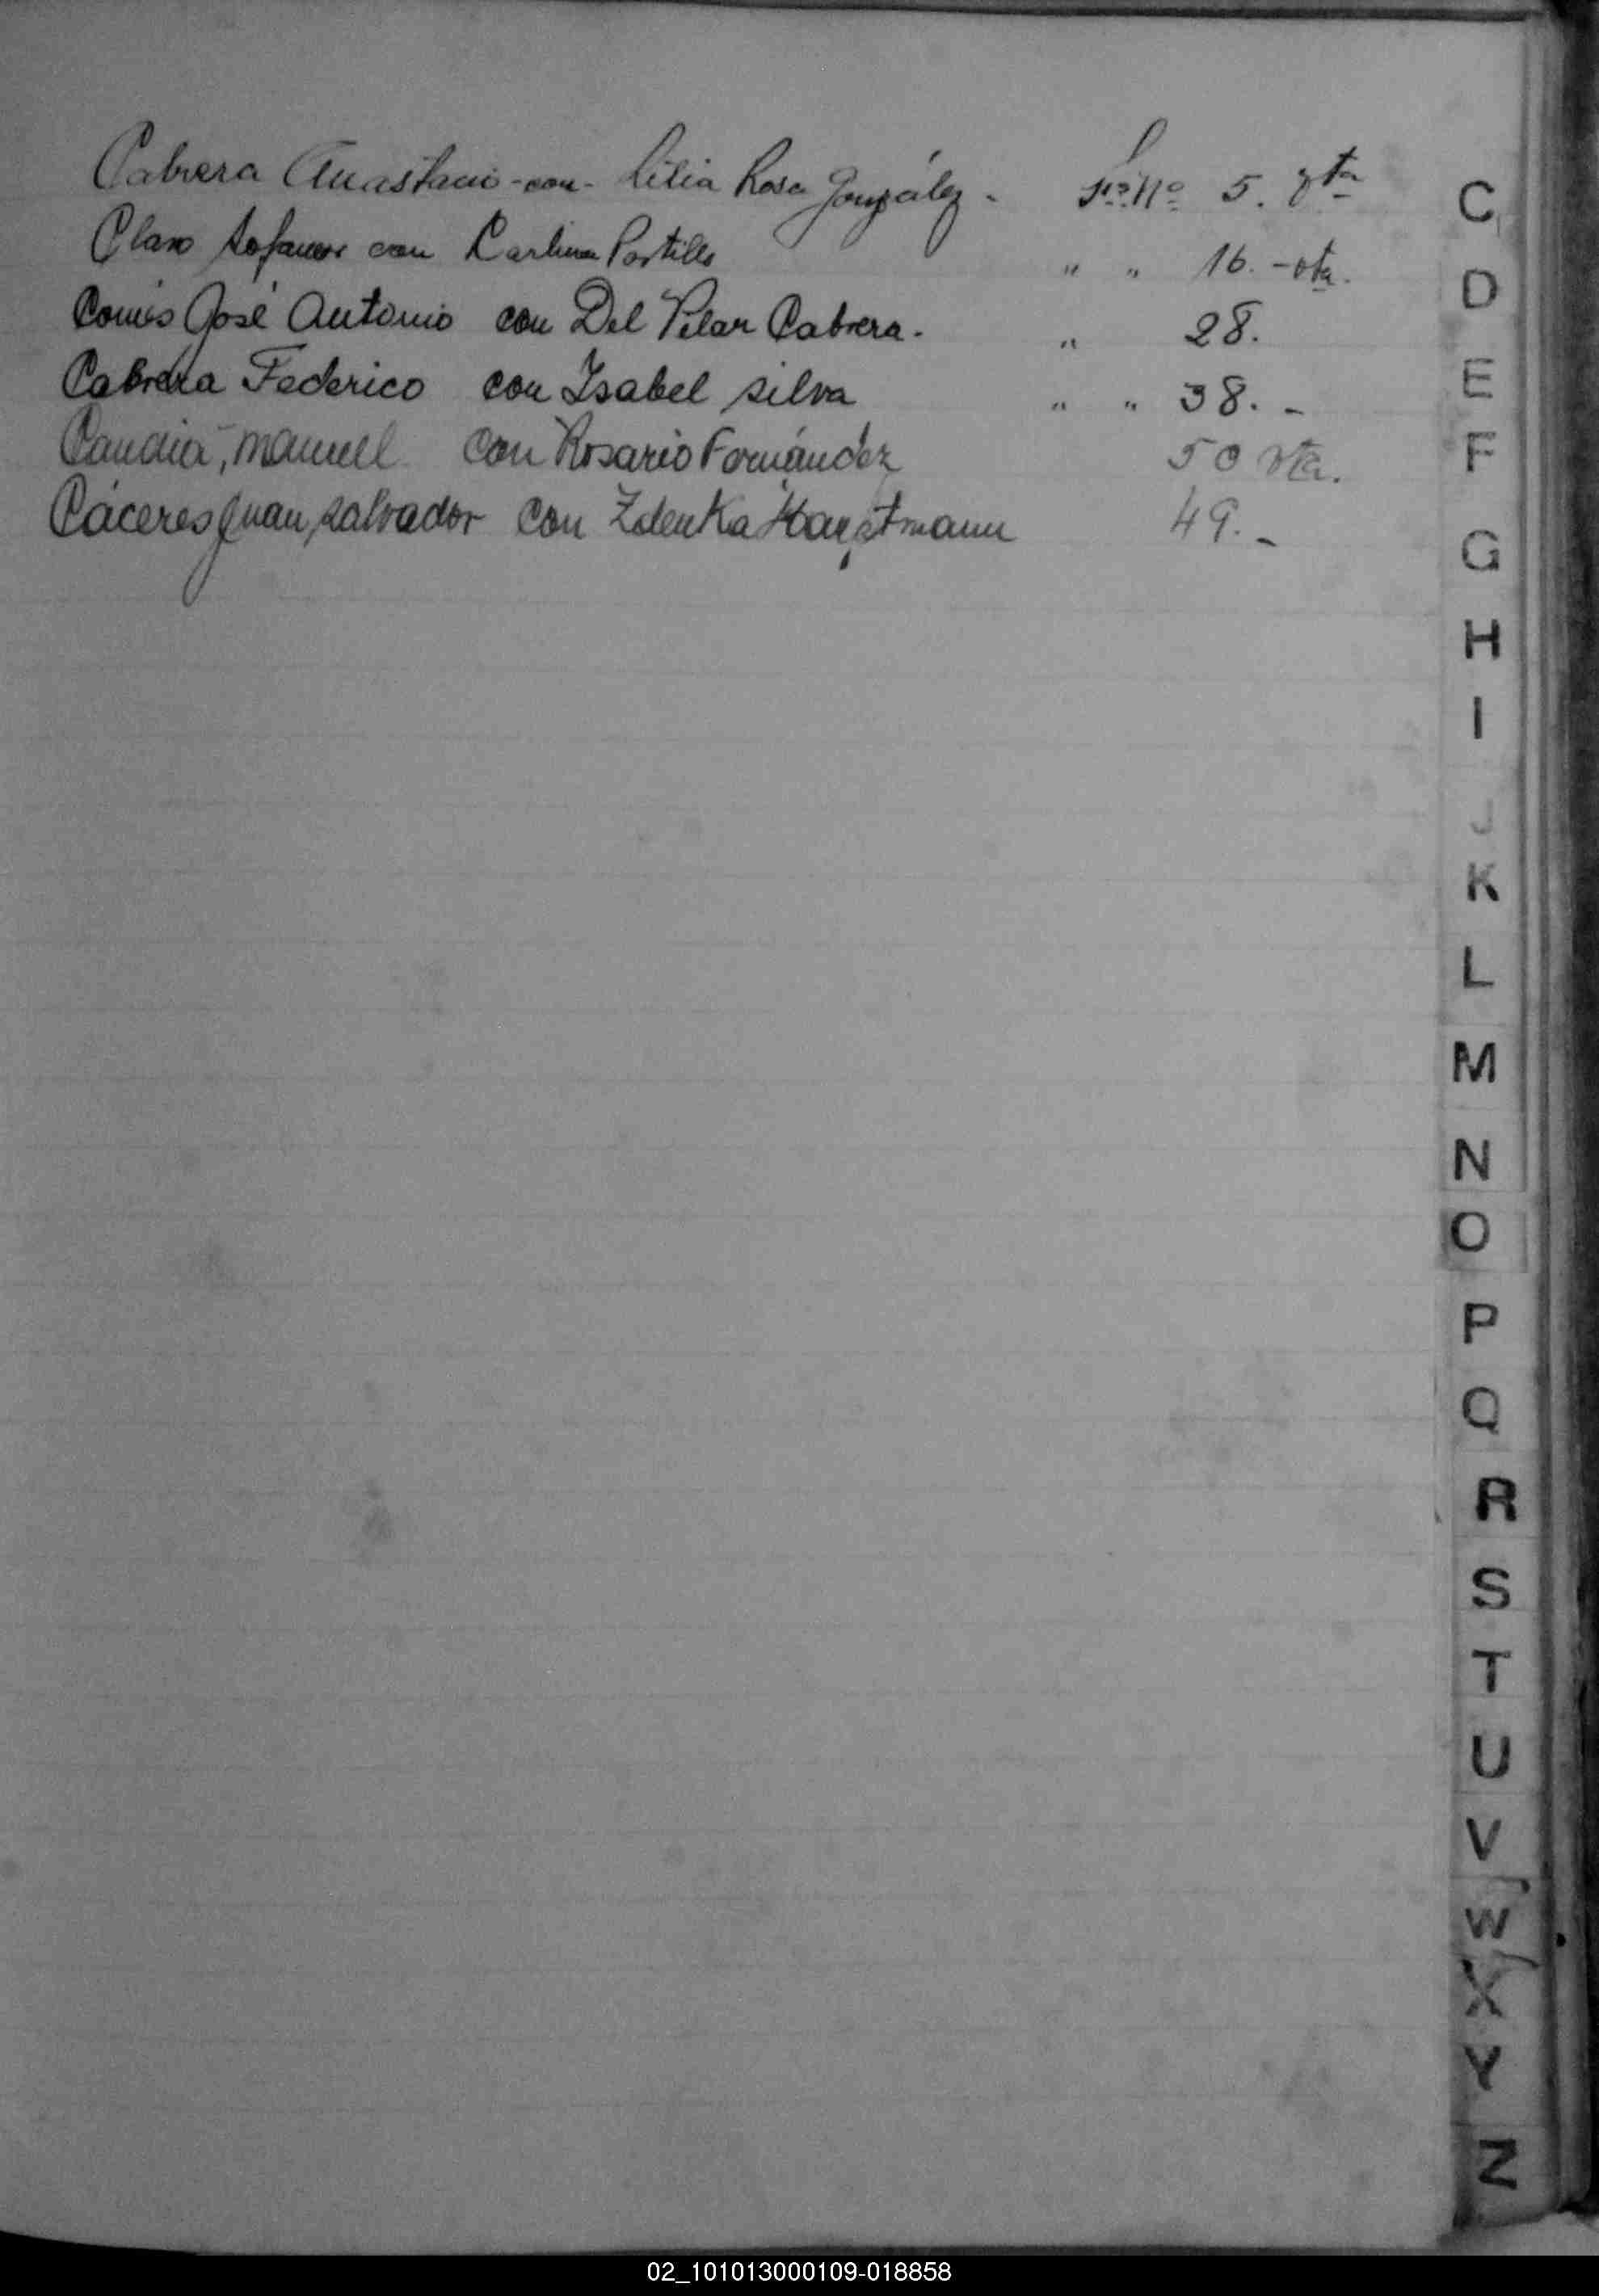 Cabrera Anastacio - con - Lilia Rosa González - Fo. No 5. vta
Claro Sofanor con Carlina Portillo " " 16. - vta.
Comis José Antonio con Del Pilar Cabrera. " 28.
Cabrera Federico con Isabel Silva " " 38. -
Candia, Manuel con Rosario Fernández 50 vta.
Cáceres Juan Salvador con Zdenka Hauptmann 49. -
C
D
E
F
G
H
I
J
K
L
M
N
O
P
Q
R
S
T
U
V
W
X
Y
Z
02_101013000109-018858